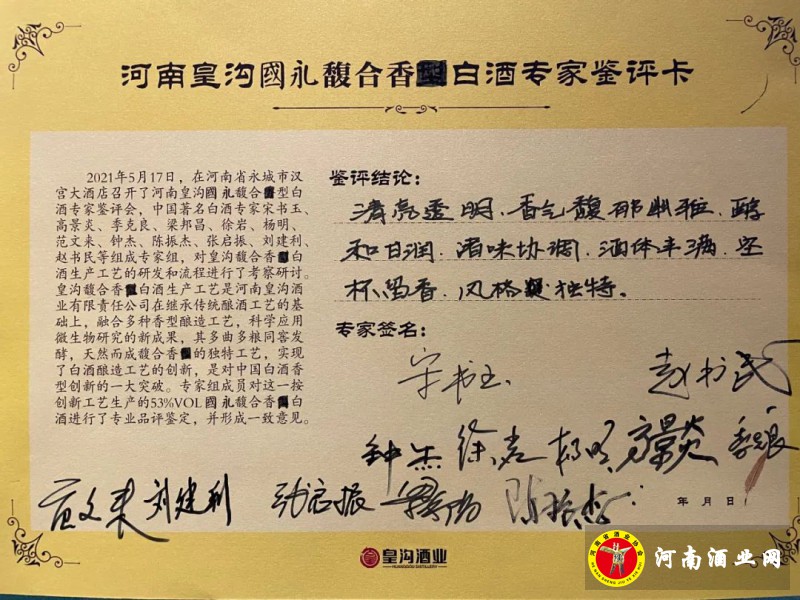 河南皇沟國永馥合香型白酒专家鉴评卡
2021年5月17日，在河南省永城市汉
宫大酒店召开了河南皇沟國永馥合香型白
酒专家鉴评会，中国著名白酒专家宋书玉、
高景炎、季克良、梁邦昌、徐岩、杨明、
范文来、钟杰、陈振杰、张启振、刘建利、
赵书民等组成专家组，对皇沟馥合香型白
酒生产工艺的研发和流程进行了考察研讨。
皇沟馥合香型白酒生产工艺是河南皇沟酒
业有限责任公司在继承传统酿酒工艺的基
础上，融合多种香型酿造工艺，科学应用
微生物研究的新成果，其多曲多粮同客发
酵，天然而成馥合香型的独特工艺，实现
了白酒酿造工艺的创新，是对中国白酒香
型创新的一大突破。专家组成员对这一按
创新工艺生产的53%VOL國永馥合香型白
酒进行了专业品评鉴定，并形成一致意见。
鉴评结论：
清亮透明、香气馥郁幽雅、醇
和甘润、诸味协调、酒体丰满、空
杯留香、风格独特。
专家签名：
宋书玉 赵书民
钟杰 徐岩 杨明 高景炎 季克良
范文来 刘建利 张启振 梁邦昌 陈振杰
年 月 日
皇沟酒业
HUANGGOU DISTILLERY
河南省酒业协会
河南酒业网